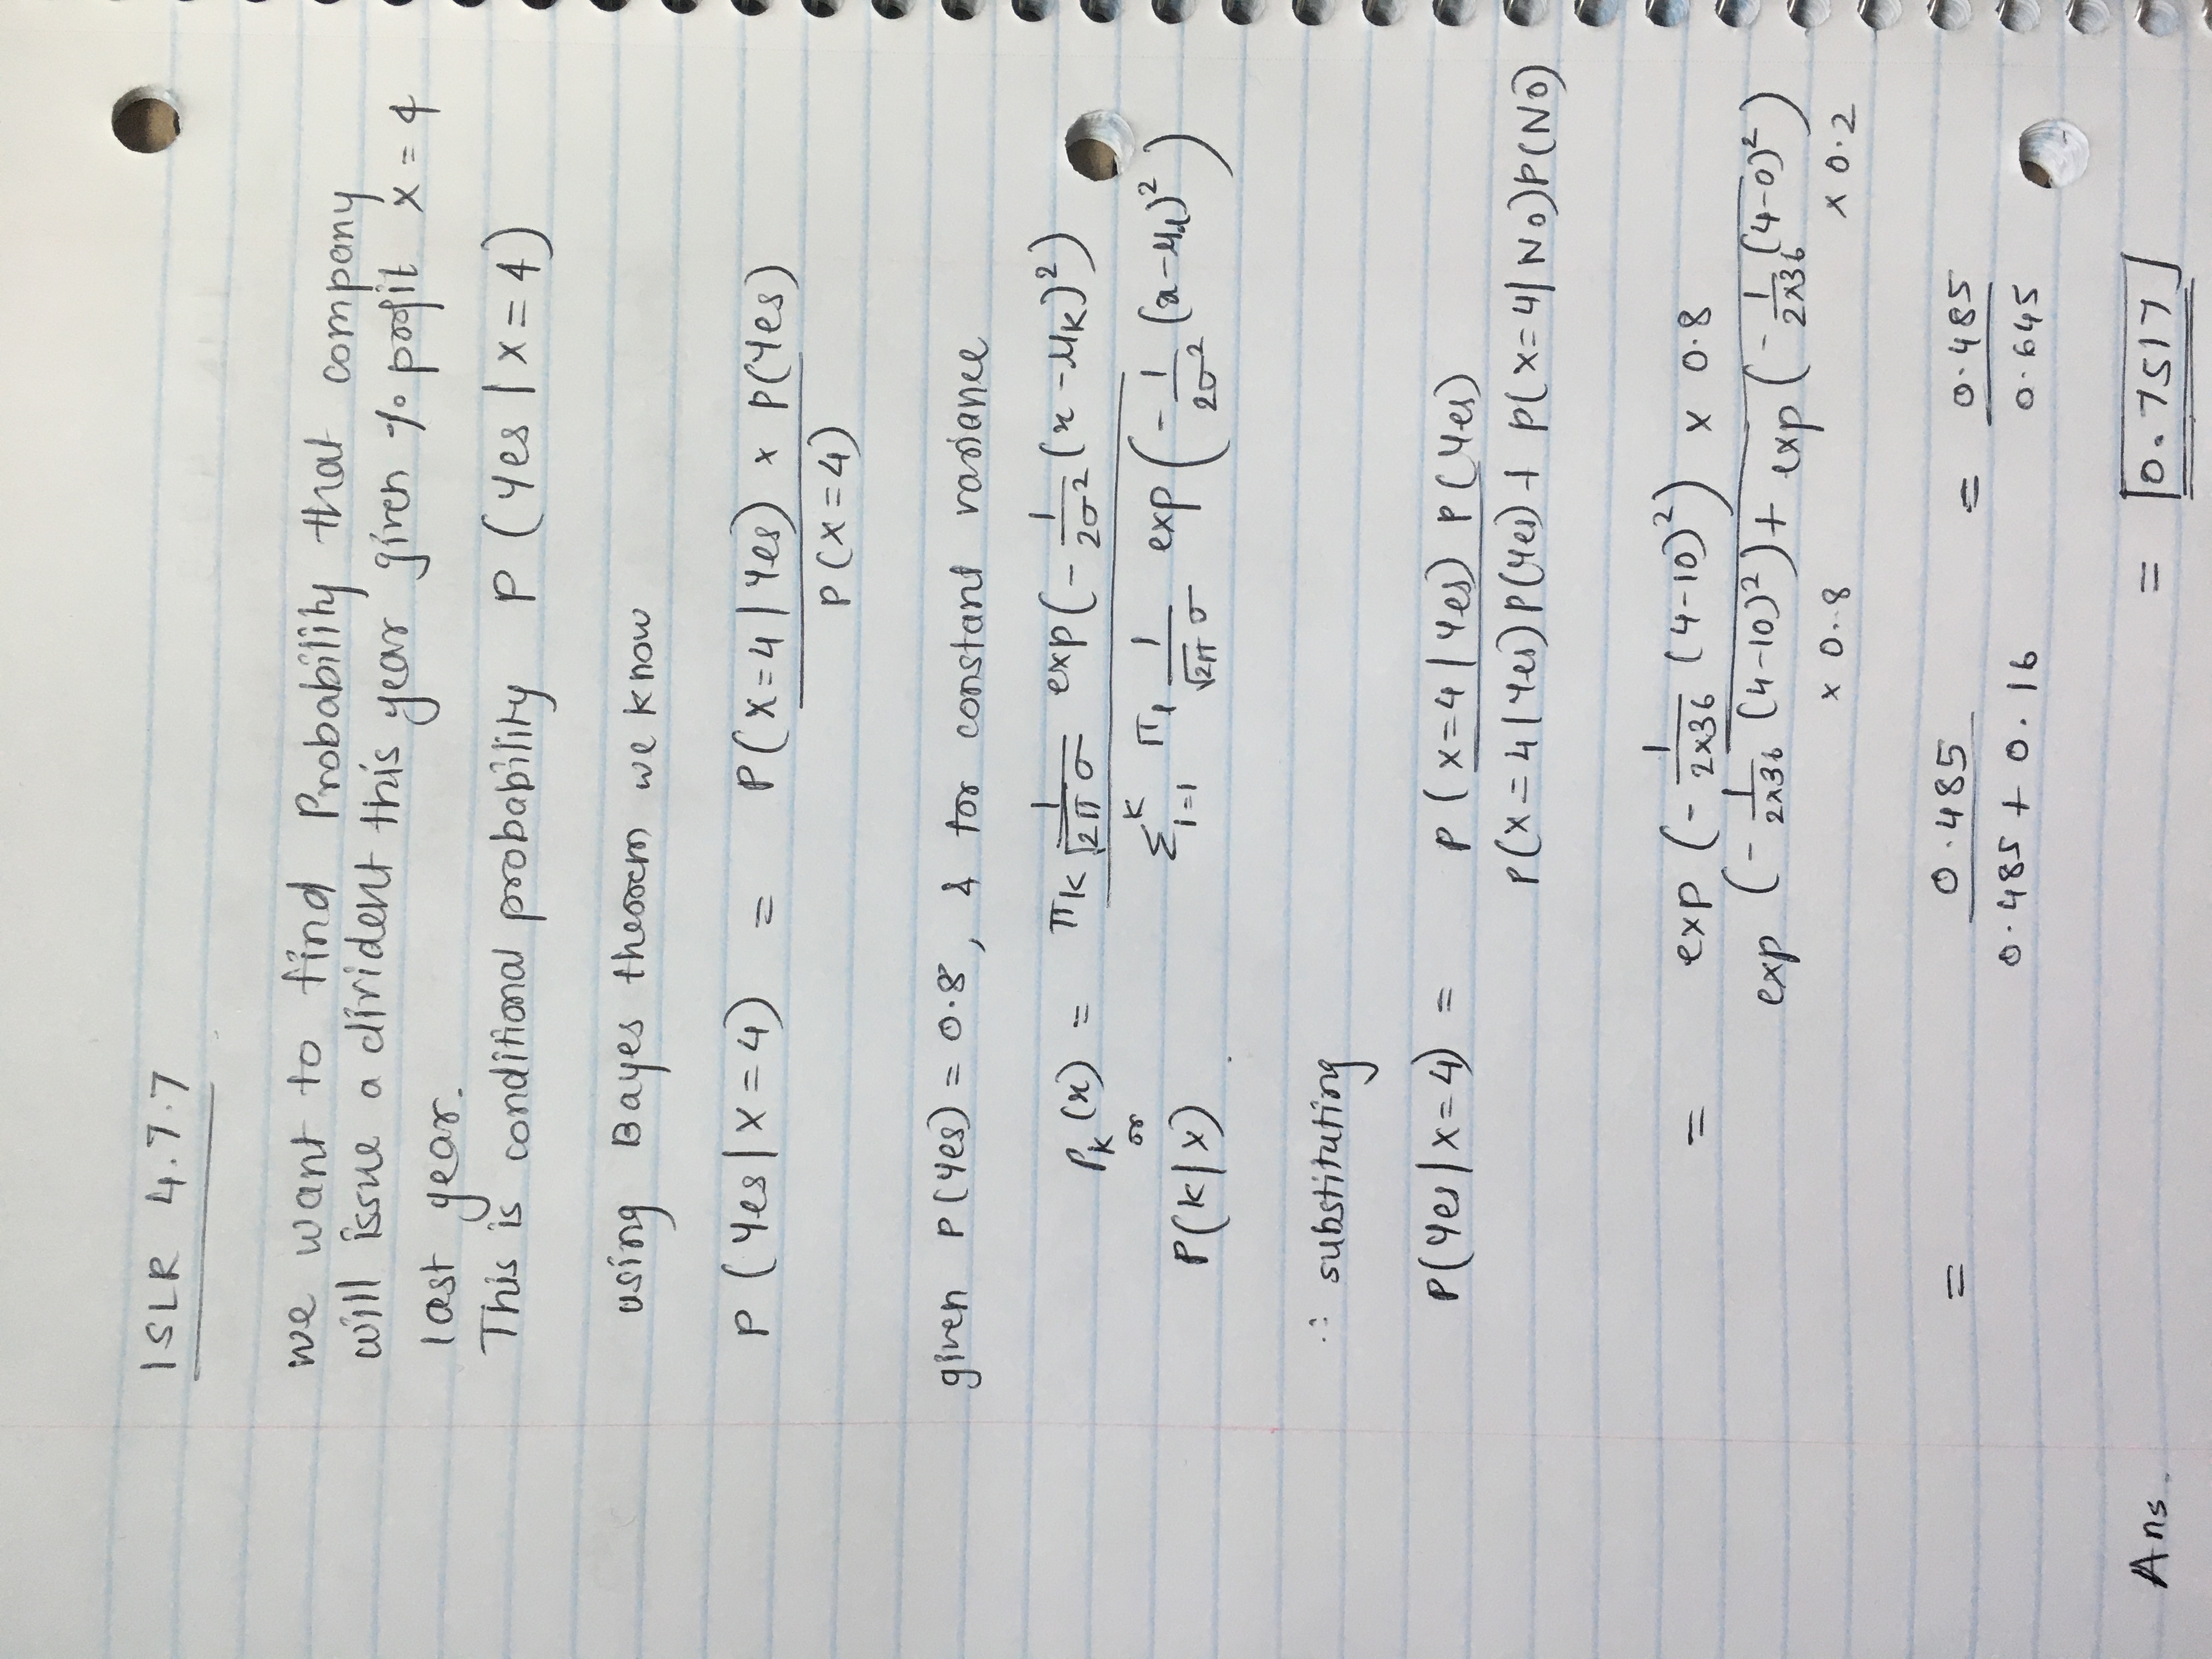 ISLR 4.7.7
we want to find Probability that company
will issue a divident this year given % profit x = 4
last year.
This is conditional probability P ( Yes | X = 4 )
using Bayes theorem we know
P ( Yes | X = 4 ) = P( X=4 | Yes ) × P(Yes)
P ( X = 4 )
given P(Yes) = 0.8, & for constant variance
Pk (x) = πk 1/√2π σ exp( - 1/2σ² (x - μk)² )
or
Σ K l=1 πl 1/√2π σ exp ( - 1/2σ² (x - μl)² )
P(K|X)
∴ substituting
P(Yes | X = 4) = P ( X=4 | Yes) P(Yes)
P(X = 4 | Yes) P(Yes) + P( X=4 | No) P(No)
= exp ( - 1/2×36 (4-10)² ) × 0.8
exp ( - 1/2×36 (4-10)² ) + exp ( - 1/2×36 (4-0)² )
× 0.8 × 0.2
= 0.485 / 0.485 + 0.16 = 0.485 / 0.645
Ans. = 0.7517